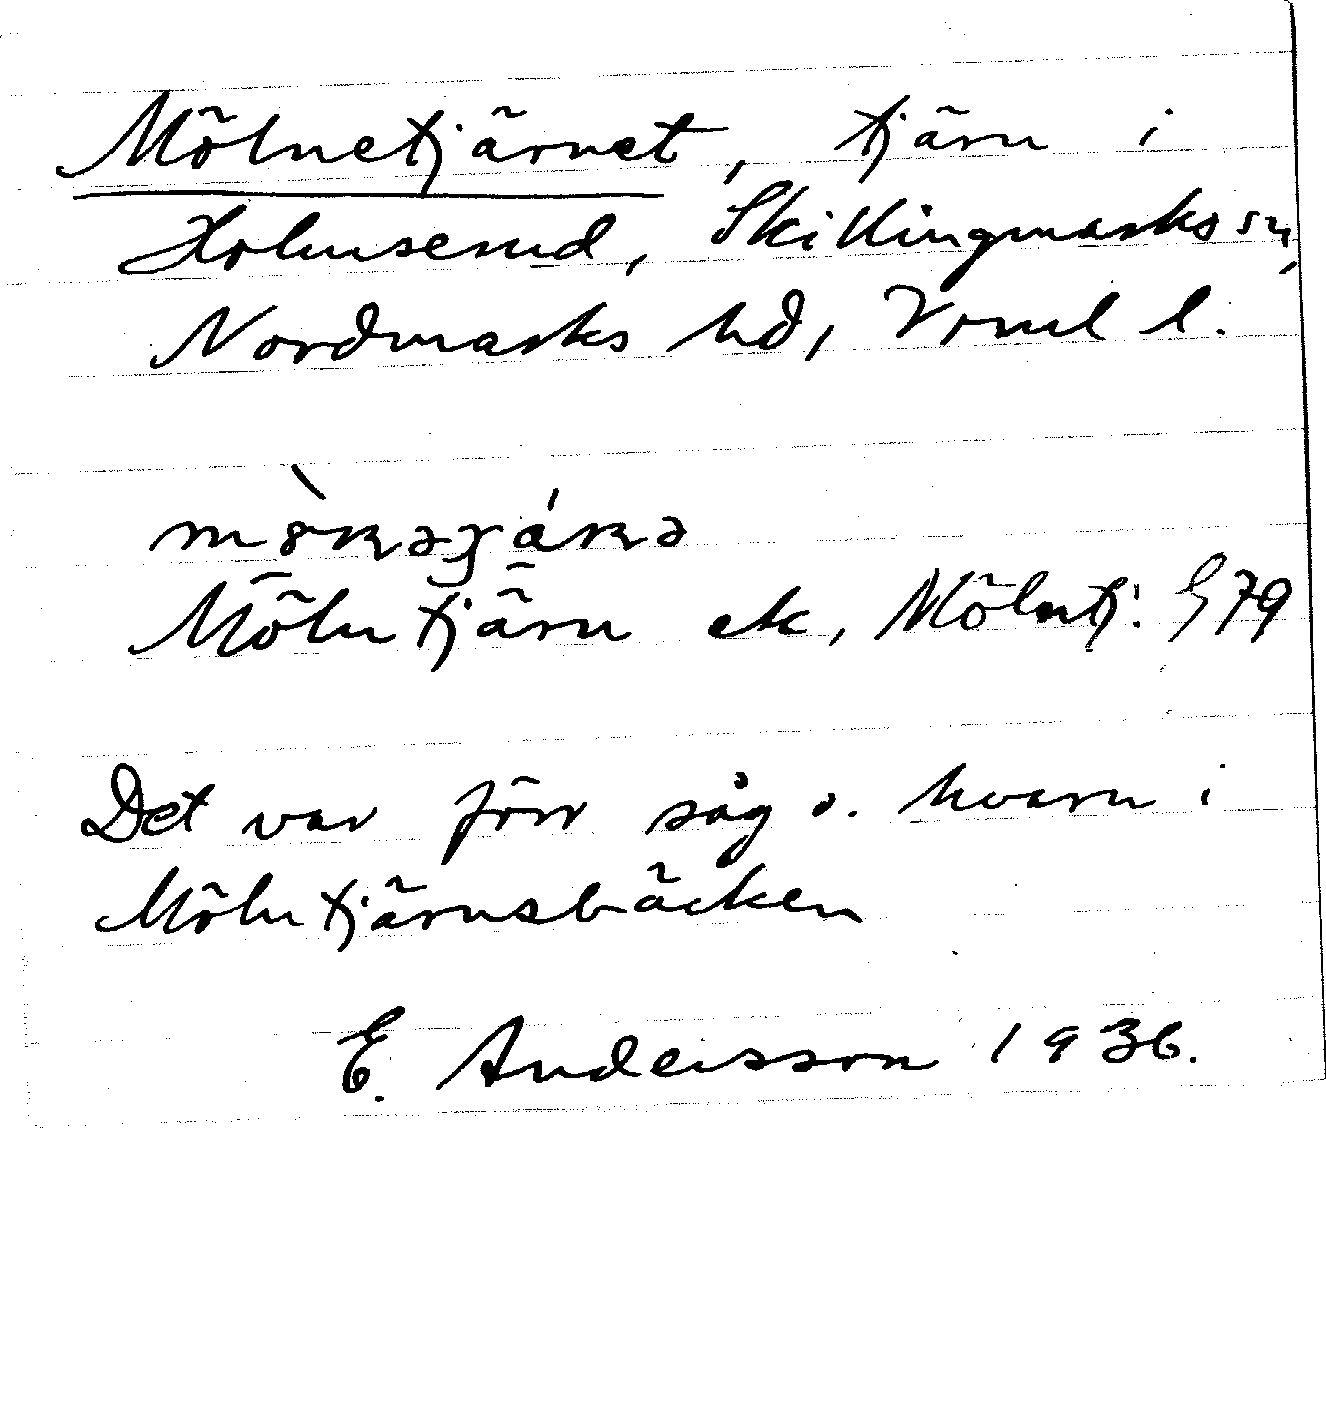 Mölnetjärnet, tjärn i
Holmserud, Skillingmarks sn,
Nordmarks hd, Värml l.
Mölntjärn ek, Mölntj. G 79
Det var förr såg o. kvarn i
Mölntjärnsbäcken
E. Andersson 1936.